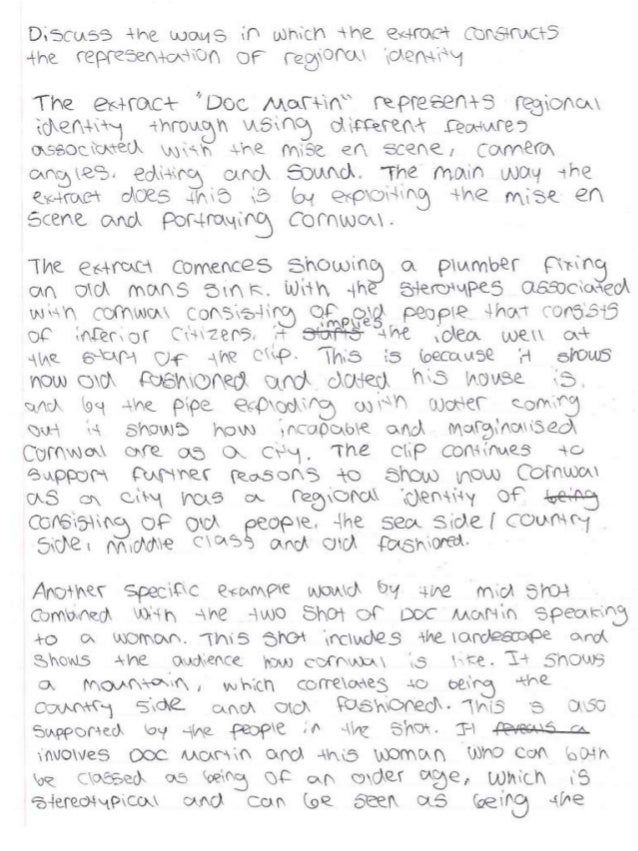 Discuss the ways in which the extract constructs
the representation of regional identity
The extract "Doc Martin" represents regional
identity through using different features
associated with the mise en scene, camera
angles, editing and sound. The main way the
extract does this is by exploiting the mise en
scene and portraying Cornwal.
The extract comences showing a plumber fixing
an old mans sink. With the sterotypes associated
with cornwal consisting of old people that consists
of inferior citizens, it starts implies the idea well at
the start of the clip. This is because it shows
how old fashioned and dated his house is,
and by the pipe exploding with water coming
out it shows how incapable and marginalised
Cornwal are as a city. The clip continues to
support further reasons to show how Cornwal
as a city has a regional identity of being
consisting of old people, the sea side/country
side, middle class and old fashioned.
Another specific example would by the mid shot
combined with the two shot of Doc Martin speaking
to a woman. This shot includes the landescape and
shows the audience how cornwal is like. It shows
a mountain, which correlates to being the
country side and old fashioned. This is also
supported by the people in the shot. It reveals a
involves Doc Martin and this woman who can both
be classed as being of an older age, which is
stereotypical and can be seen as being the